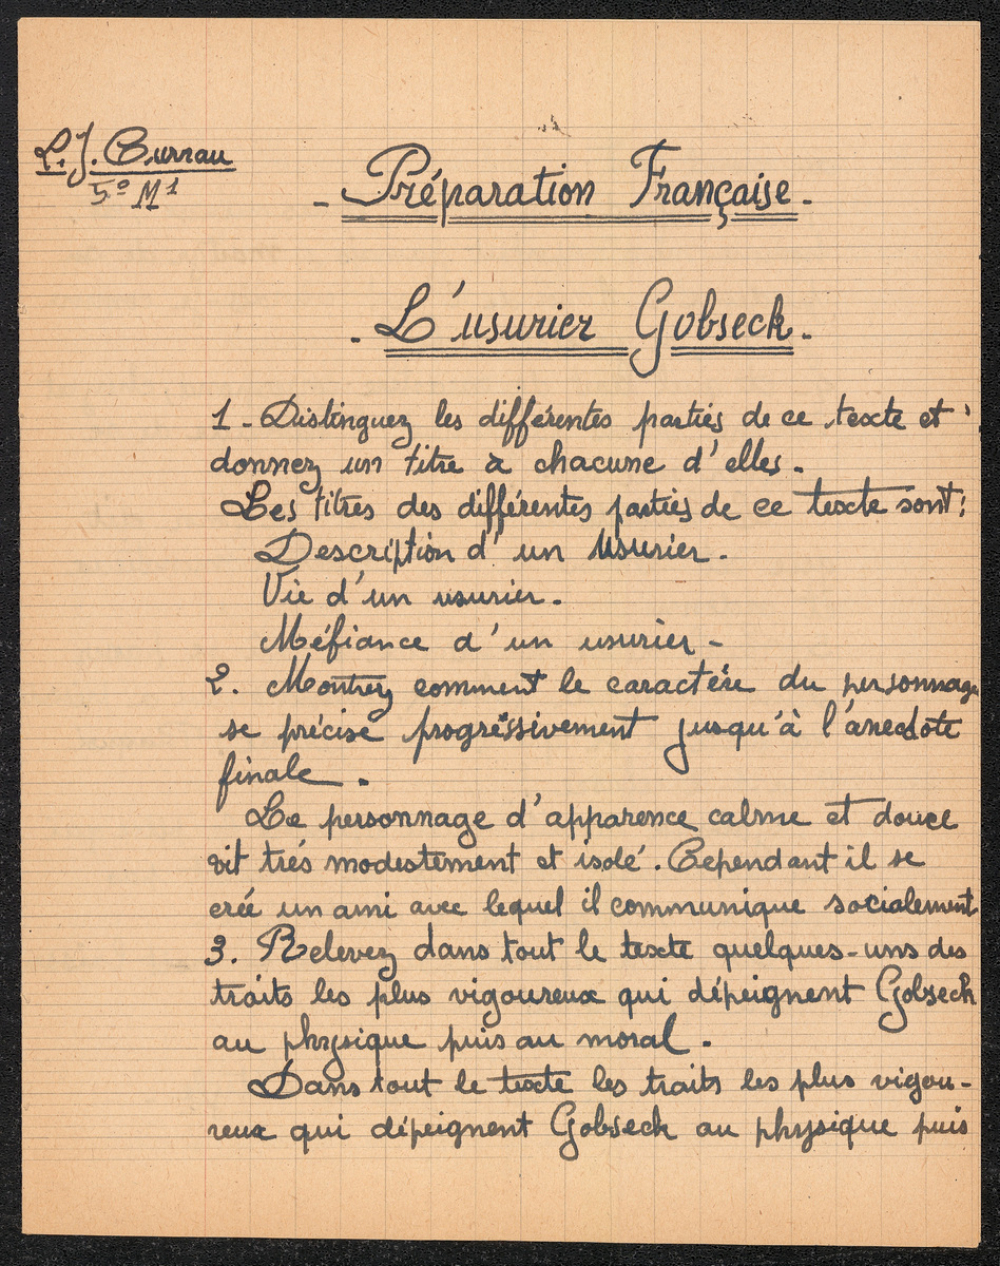 L.J. Curzau
5º M1
- Préparation Française -
- L'usurier Gobseck -
1 - Distinguez les différentes parties de ce texte et
donnez un titre à chacune d'elles.
Les titres des différentes parties de ce texte sont:
Description d'un Usurier.
Vie d'un usurier.
Méfiance d'un usurier -
2. Montrez comment le caractère du personnage
se précise progressivement jusqu'à l'anecdote
finale.
Le personnage d'apparence calme et douce
vit trés modestement et isolé. Cependant il se
crée un ami avec lequel il communique socialement
3. Relevez dans tout le texte quelques-uns des
traits les plus vigoureux qui dépeignent Gobseck
au physique puis au moral.
Dans tout le texte les traits les plus vigou-
reux qui dépeignent Gobseck au physique puis